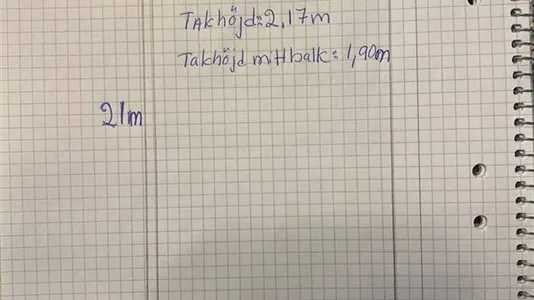 Takhöjd: 2,17m
Takhöjd mittbalk: 1,90m
21m